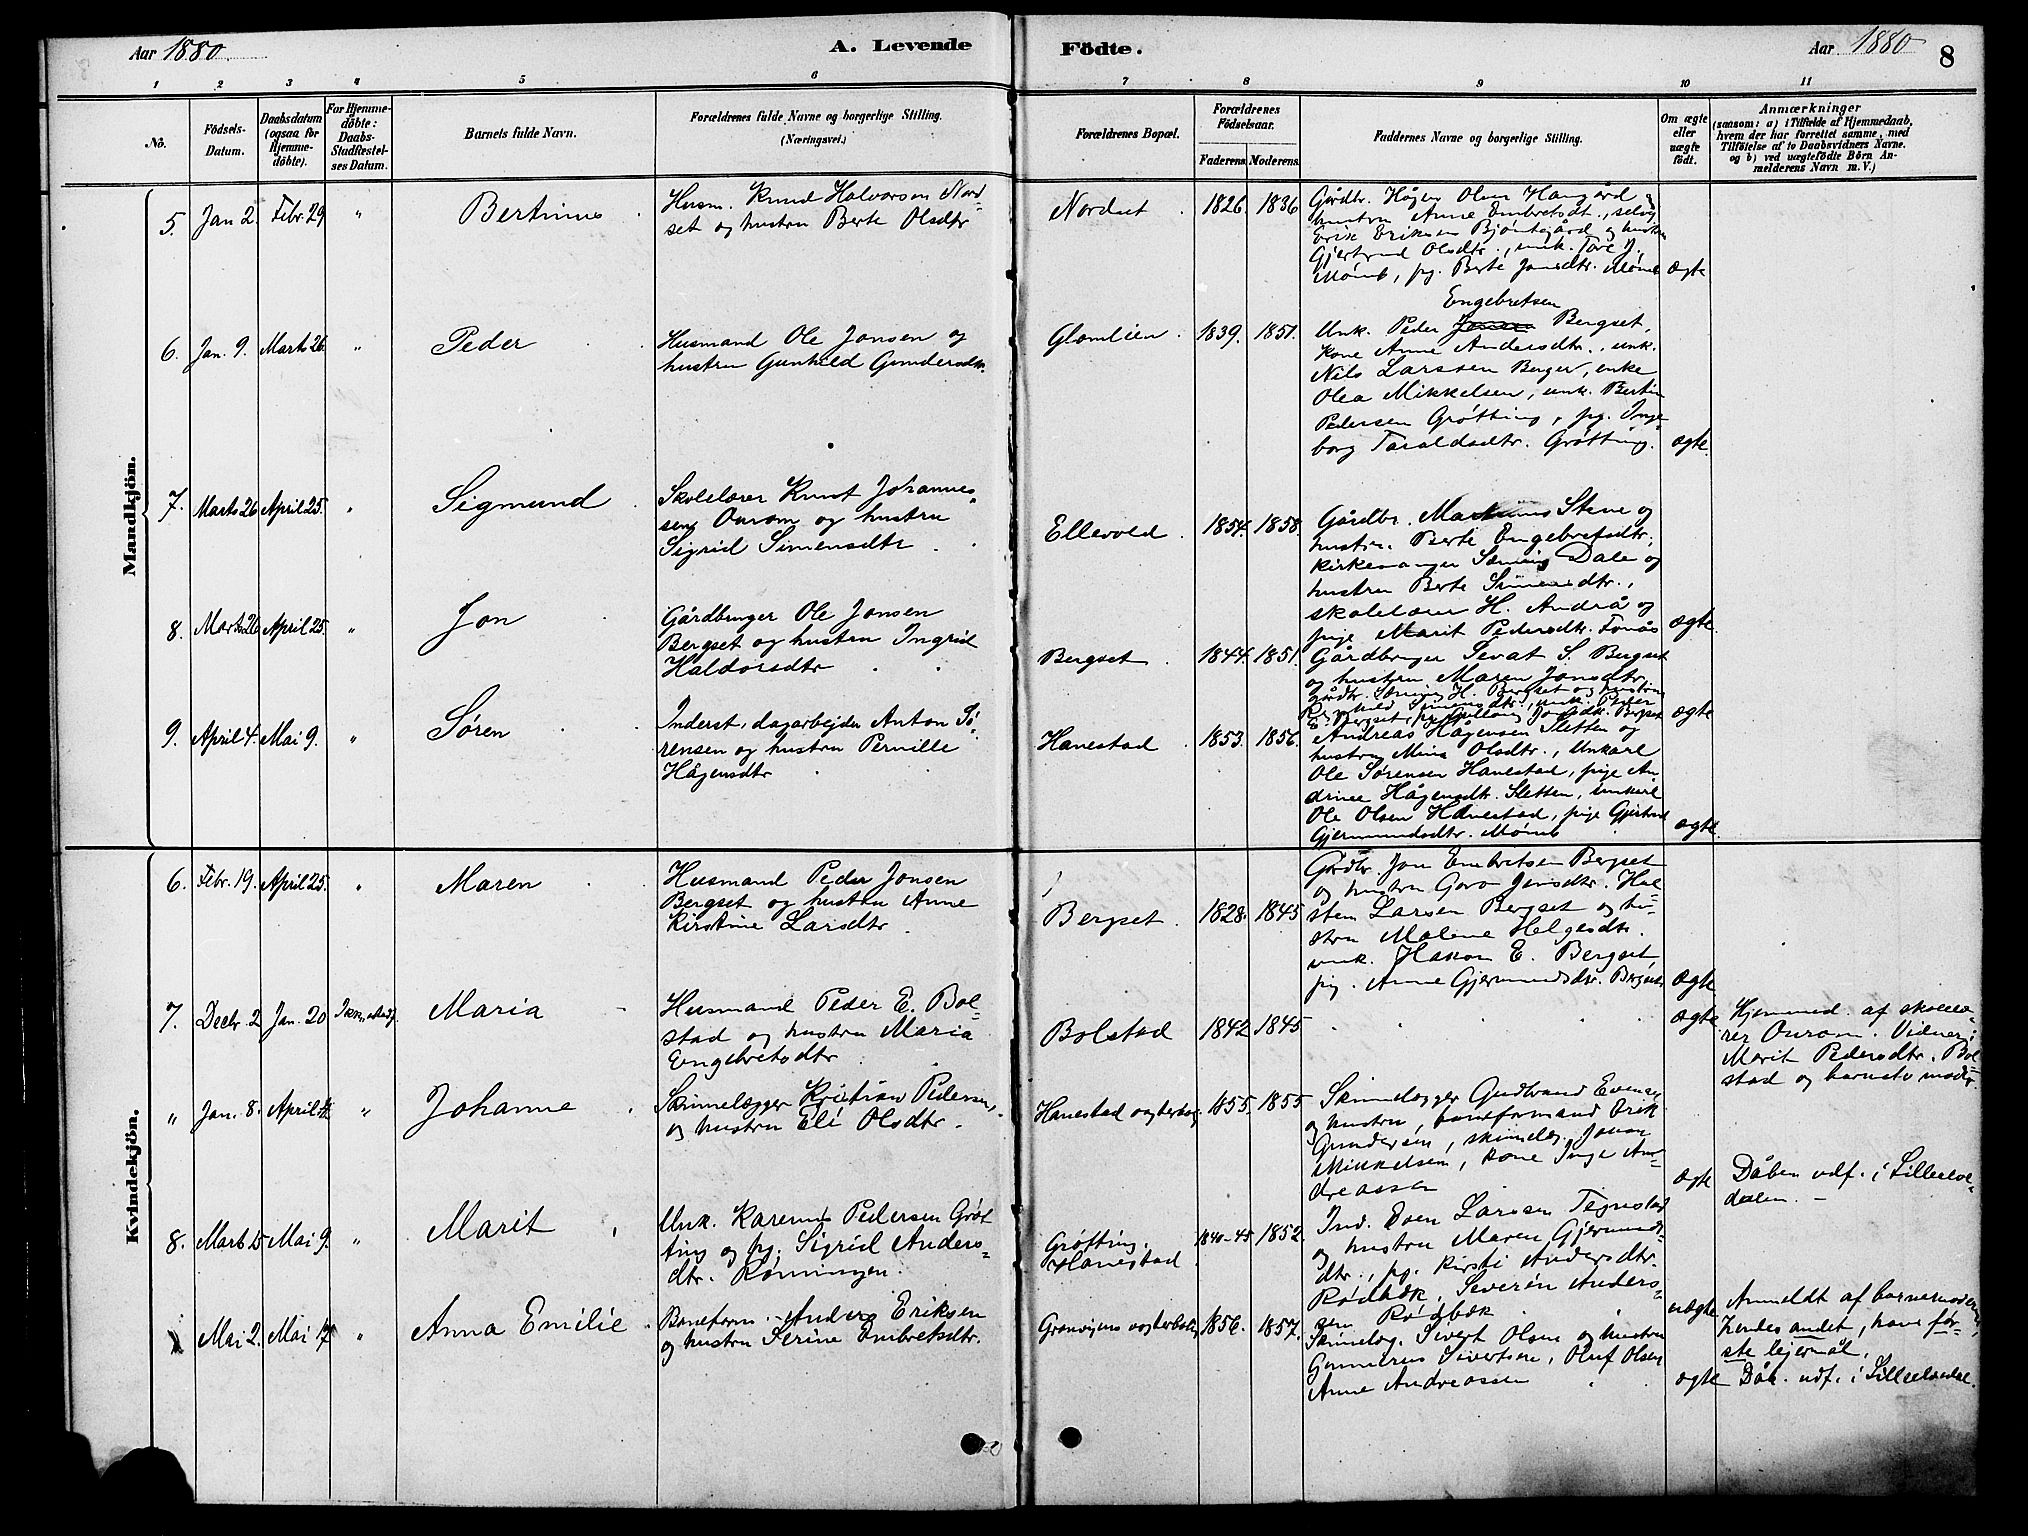 Aar 1880.
A. Levende
Födte.
Aar 1880
8
1 2 3 4 5 6 7 8 9 10 11
No.
Födsels-Datum.
Daabsdatum (ogsaa for Hjemmedöbte).
For Hjemmedöbte: Daabs-Stadfæstelses Datum.
Barnets fulde Navn.
Forældrenes fulde Navne og borgerlige Stilling. (Næringsvei.)
Forældrenes Bopæl.
Forældrenes Födselsaar.
Faderens. Moderens.
Faddernes Navne og borgerlige Stilling.
Om ægte eller uægte födt.
Anmærkninger
(saasom: a) i Tilfælde af Hjemmedaab,
hvem der har forrettet samme, med
Tilföielse af to Daabsvidners Navne.
og b) ved uægtefödte Börn Anmelderens Navn m. V.)
Mandkjön.
5. Jan 2. Febr. 29 "
Bertinus
Husm. Knud Halvorsen Nord-
set og hustru Berte Olsdtr
Nordset
1826 1836
Gårdbr. Hågen Olsen Haugård og
hustru Anne Embretsdt., selvg.
Erik Eriksen Bjøntegård og hustru
Gjertrud Olsdtr., unk. Tore J.
Mømb, pg. Berte Jonsdtr. Mømb
ægte
6. Jan. 9. Marts 26. "
Peder
Husmand Ole Jonsen og
hustru Gunhild Gundersdtr.
Glomlien.
1839. 1851.
Engebretsen
Unk. Peder Jonsen Bergset,
kone Anne Andersdtr., unk.
Nils Larssen Berger, enke
Olea Mikkelsen, unk. Bertin
Pedersen Grøtting, pg. Inge-
borg Taraldsdtr. Grøtting.
ægte.
7. Marts 26 April 25. "
Sigmund
Skolelærer Knut Johannes-
sen Ourom og hustru
Sigrid Simensdtr
Ellevold
1854. 1858.
Gårdbr. Stene og
hustru Berte Engebretsdtr.,
kirkesanger Sæming Dale og
hustru Berte Simensdtr.,
skolelærer H. Andrå og
pige Marit Pedersdtr. Fonås
ægte.
8. Marts 26 April 25. "
Jon
Gårdbruger Ole Jonsen
Bergset og hustru Ingrid
Haldorsdtr
Bergset
1844. 1851.
Gårdbruger Sevat S. Bergset
og hustru Maren Jonsdtr,
gårdbr. Sæming H. Bergset og hustru
Simensdtr., unk. Peder
E. Bergset, pg. Jonsdtr. Bergset
ægte
9. April 4. Mai 9. "
Søren
Inderst, dagarbejder Anton Sø-
rensen og hustru Pernille
Hågensdtr
Hanestad
1853. 1856.
Andreas Hågensen Sletten og
hustru Mina Olsdtr., Unkarl
Ole Sørensen Hanestad, pige An-
drinee Hågensdtr. Sletten, unkarl
Ole Olsen Hanestad, pige Gjertrud
Gjermundsdtr. Mømb
ægte.
Kvindekjön.
6. Febr. 19. April 25. "
Maren
Husmand Peder Jonsen
Bergset og hustru Anne
Kirstine Larsdtr
Bergset
1828. 1845
Gårdbr. Jon Embretsen Bergset
og hustru Goro Jonsdtr. Hal-
sten Larsen Bergset og hu-
stru Malene Helgesdtr.
unk. Hakon E. Bergset,
pig. Anne Gjermundsdtr. Bergset
ægte
7. Decbr. 2 Jan. 20
Maria
Husmand Peder E. Bol-
stad og hustru Maria
Engebretsdtr
Bolstad
1842 1845
ægte
Hjemmed. af skolelæ-
rer Ourom. Vidner:
Marit Pedersdtr. Bol-
stad og barnets moder.
" Jan. 8. April 4. "
Johanne
Skinnelægger Kristian Pedersen
og hustru Eli Olsdtr.
Hanestad vogterbol.
1855. 1855
Skinnelægger Gudbrand Evensen
og hustru, baneformand Erik
Gundersen, skinnelæg. Johan
Mikkelsen, kone Inge An-
dreassen
ægte
Dåben udf. i Lilleelve-
dalen.
8. Marts 15 Mai 9. "
Marit
Unk. Karenus Pedersen Grøt-
ting og pg. Sigrid Anders-
dtr. Rønningen.
Grøtting.
Hanestad
1840-45 1852.
Ind. Even Larsen Tegnstad
og hustru Maren Gjermunds-
dtr., pg. Kirsti Andersdtr.
Rødbæk, Severin Anders-
sen Rødbæk
uægte
Anmeldt af barnemoderen,
hendes andet, hans før-
ste lejermål.
Mai 2. Mai 17 "
Anna Emilie
Baneform. Anders Eriksen
og hustru Serine Embretsdtr.
vogterbolig
1856. 1857.
Skinnelæg. Sivert Olsen og hustru
Gunnerus Sivertsen, Oluf Olsen
Anne Andreassen
ægte
Dåb. udf. i Lilleelvedal.